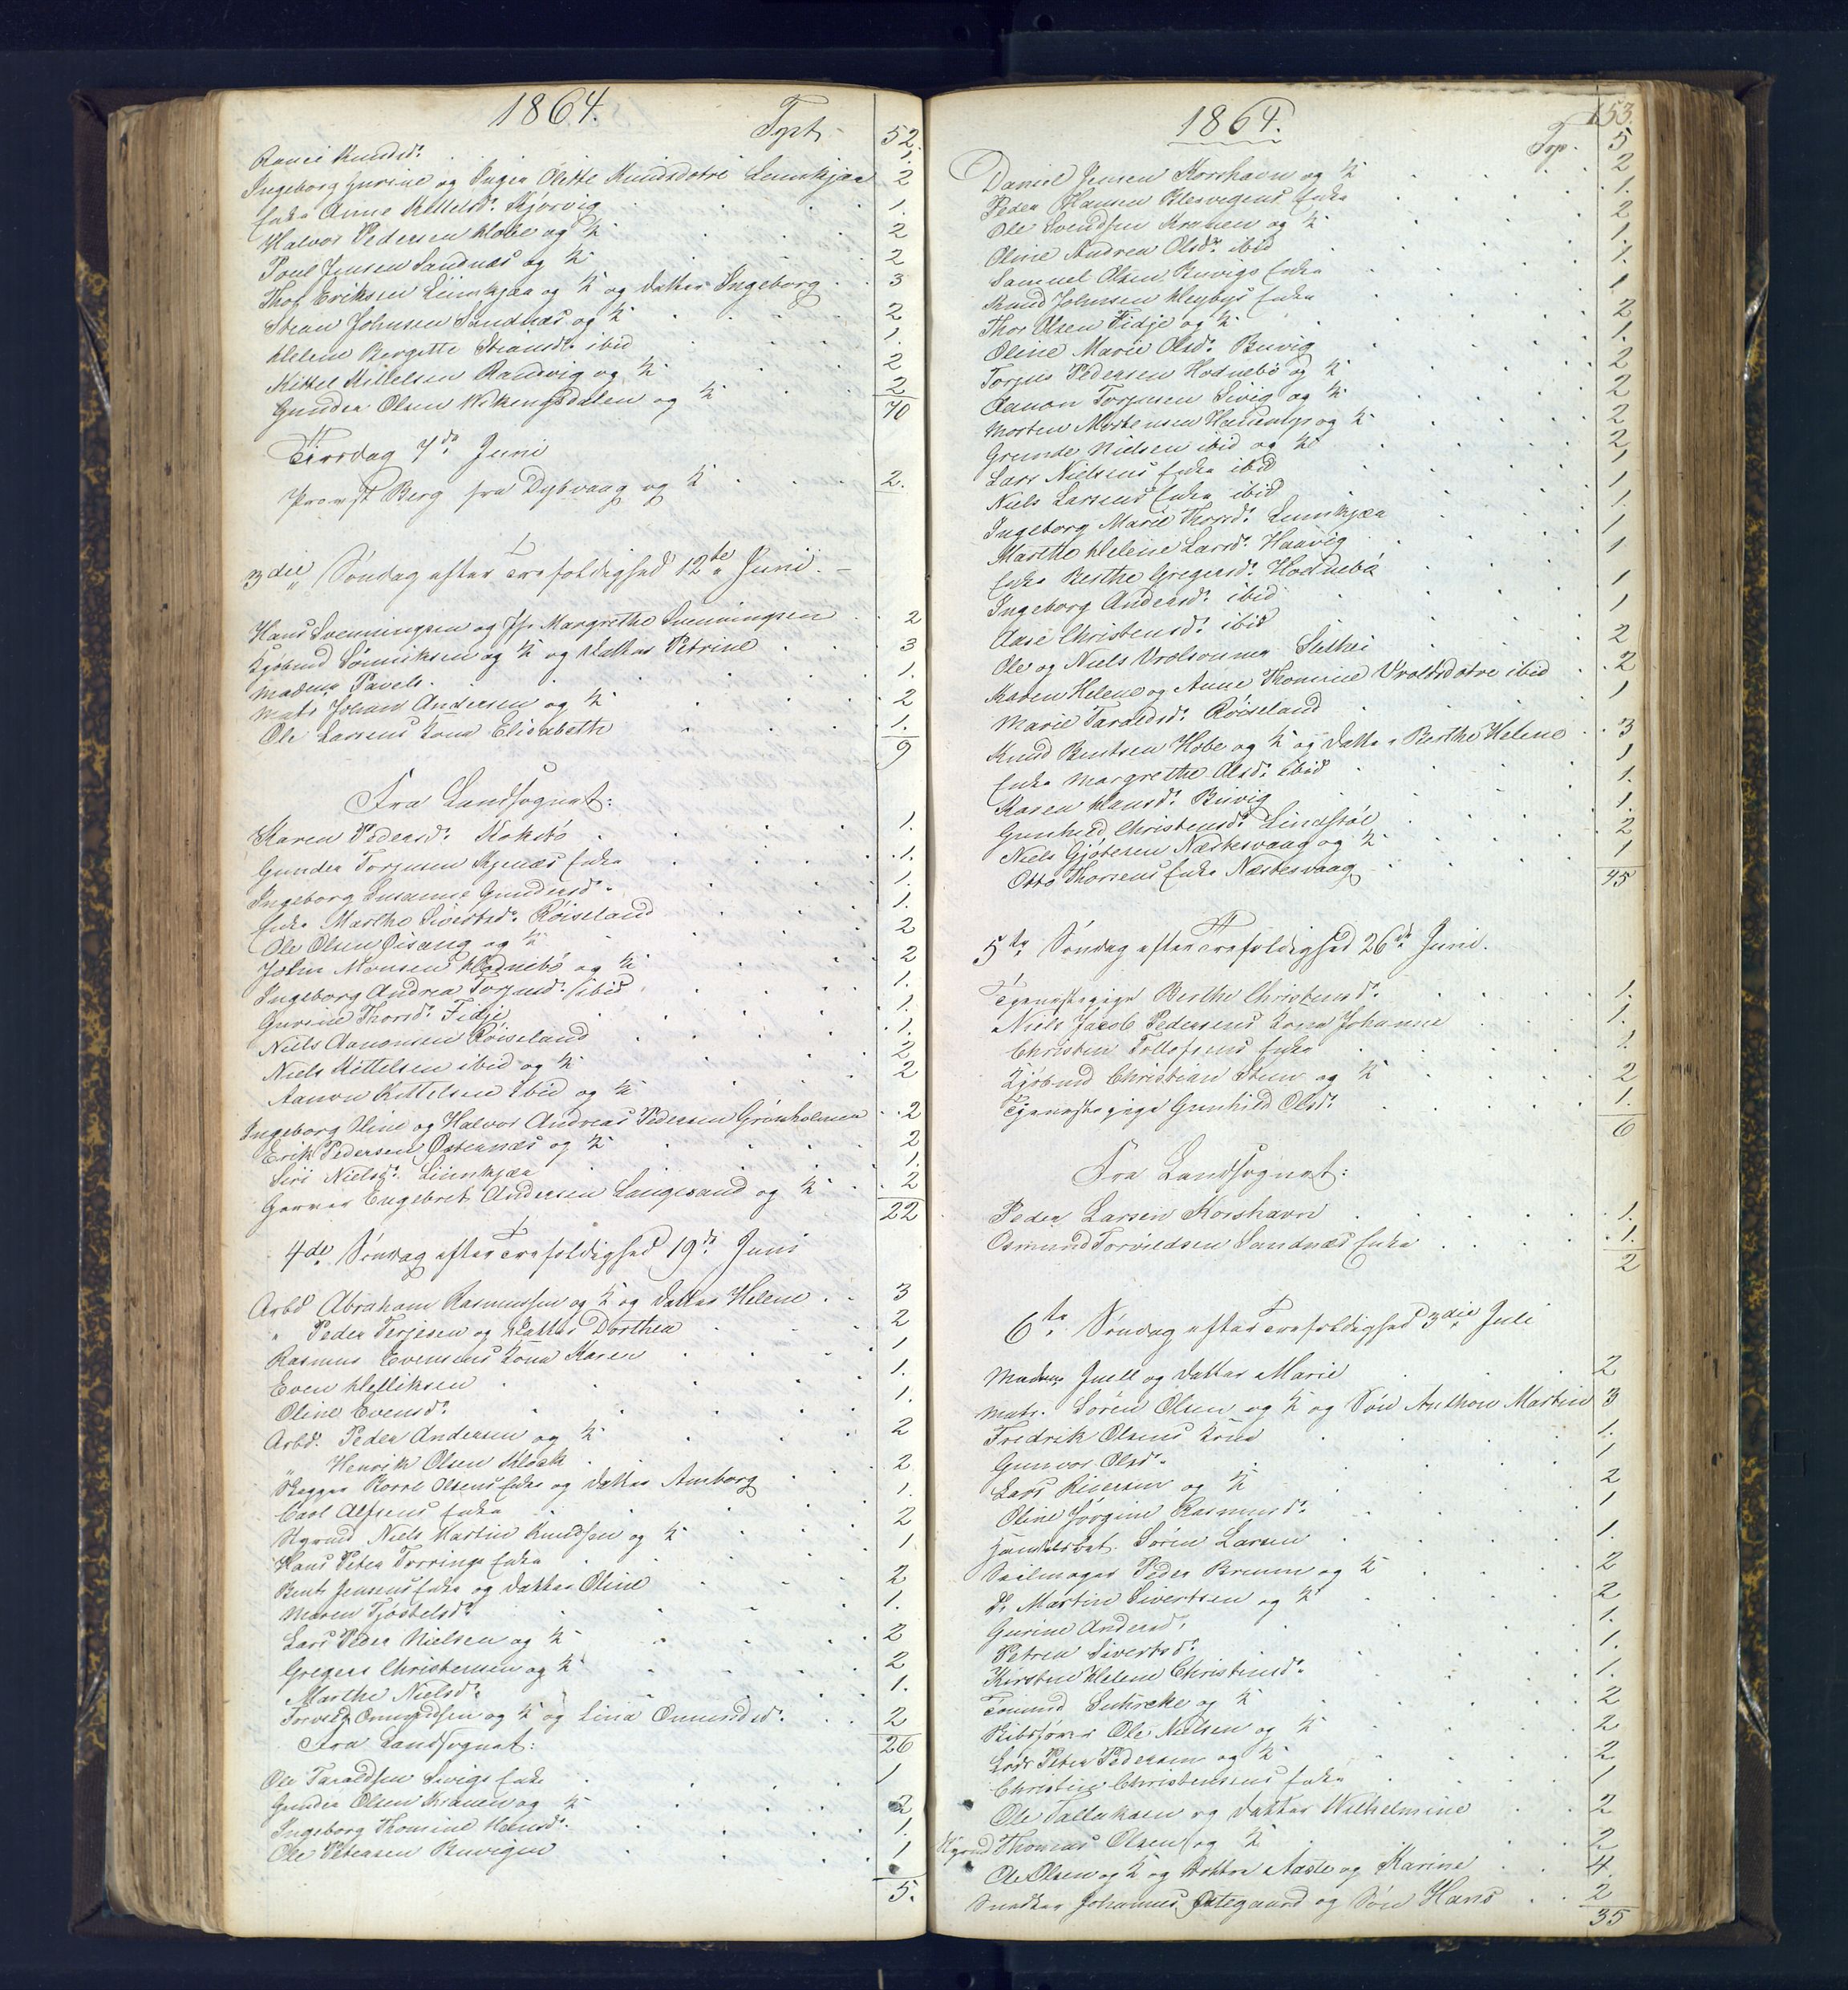 1864.
Tpt. 52.
Anne Knudsd. 1.
Ingeborg Gurine og Inger Olette Knudsdøtre Lunnkjær 2
Enke Anne Kittelsd. Kjørvig 1.
Halvor Pedersen Hobe og K. 2
Poul Jensen Sandnæs og K. 2
Thor Eriksen Lunnkjær og K. og Datter Ingeborg 3
Stian Johnsen Sandnæs og K. 2
Helene Bergette Stiansd. ibid 1.
Kittel Kittelsen Randvig og K. 2
Gunder Olsen Vikingsdalen og K. 2
70
Tirsdag 7de Juni
Provst Berg fra Dybvaag og K. 2.
3die Søndag efter Trefoldighed 12te Juni. –
Hans Svenningsen og Jfr Margrethe Svenningsen 2
Kjøbmd Sønniksen og K. og Datter Petrine 3
Madme Pavels. 1.
Matr Johan Andersen og K. 2
Ole Larsens Kone Elisabeth 1.
9
Fra Landsognet:
Karen Pedersd. Kokebø 1.
Gunder Torjusen Kjenæs Enke 1.
Ingeborg Susanne Gundersd. 1.
Enke Marthe Sivertsd. Røiseland 1.
Ole Olsen Øisang og K. 2
John Monsen Hodnebø og K. 2
Ingeborg Andrea Torjusd. ibid 1.
Gurine Thorsd. Fidje 1.
Niels Aanonsen Røiseland 1.
Niels Kittelsen ibid og K. 2
Aanon Kittelsen ibid og K. 2
Ingeborg Stine og Halvor Andreas Pedersen Grønholmen 2
Erik Pedersen Østernæs og K. 2
Siri Nielsd. Lünnkjær 1.
Garver Engebret Andersen Laugesand og K. 2
22
4de Søndag efter Trefoldighed 19de Juni
Arbd Abraham Rasmussen og K. og Datter Helene 3
" Peder Terjesen og Datter Dorthea 2
Rasmus Evensens Kone Karen 1
Even Helliksen 1.
Oline Evensd. 1.
Arbd. Peder Andersen og K. 2
" Henrik Olsen
Skipper Børre Olsens Enke og Datter Amborg 2
Carl Alfsens Enke 1.
Styrmd Niels Martin Knudsen og K. 2
Hans Peter Terrings Enke 1
Bent Jensens Enke og Datter Oline 2
Maren Tjøstelsd. 1.
Lars Peder Nielsen og K. 2
Gregers Christensen og K. 2
Marthe Nielsd. 1.
Torvild Omundsen og K. og Lina Omundsd. 2
26
Fra Landsognet:
Ole Taraldsen Sivigs Enke 1
Gunder Olsen Kranen og K. 2
Ingeborg Thomine Hansd. 1.
Ole Petersen Buvigen 1
5.
153.
1864.
Tsp. 5
Daniel Jensen Korshavn og K. 2
Peder Hansen Klesvigens Enke 1.
Ole Svendsen Kranen og K. 2
Oline Andrea Olsd. ibid 1.
Samuel Olsen Buvigs Enke 1.
Knud Johnsen Høybys Enke 1
Thor Olsen Fidje og K. 2
Oline Marie Olsd. Buvig 1.
Torjus Pedersen Hodnebø og K. 2
Aanon Torjusen Sivig og K. 2
Morten Mortensen og K. 2
Grunde Nielsen ibid og K. 2
Lars Nielsens Enke ibid 1
Niels Larsens Enke ibid 1
Ingeborg Marie Thorsd. Lunnkjær 1.
Marthe Helene Larsd. Haavig 1
Enke Berthe Gregersd. Hodnebø 1
Ingeborg Andersd. ibid 1
Aase Christensd. ibid 1
Ole og Niels Vrolsønner Slethei 2
Karen Helene og Anne Thomine Vrolsdøtre ibid 2
Marie Taraldsd. Røiseland 1
Knud Bentsen Hobe og K. og Datter Berthe Helene 3
Enke Margrethe Olsd. ibid 1
Karen Hansd. Buvig 1.
Gunhild Christensd. Lindstøl 1.
Niels Gjøtesen Næstesvaag og K. 2
Otto Thorsens Enke Næstesvaag 1
45
5te Søndag efter Trefoldighed 26de Juni.
Tjenestepige Berthe Christensd. 1.
Niels Jacob Pedersens Kone Johanne 1.
Christen Tollofsens Enke 1
Kjøbmd Christian Steen og K. 2
Tjenestepige Gunhild Olsd. 1.
6
Fra Landsognet:
Peder Larsen Korshavn 1.
Osmund Torvildsen Sandnæs Enke 1.
2
6te Søndag efter Trefoldighed 3die Juli
Madme Juell og Datter Marie 2
Matr. Søren Olsen og K. og Søn Anthon Martin 3
Fredrik Olsens Kone 1.
Gunvor Olsd. 1
Lars Riersen og K. 2
Oline Jørgine Rasmusd. 1
Handelsbet. Søren Larsen 1.
Seilmager Peder Bruun og K. 2
Do Martin Sivertsen og K. 2
Gurine Andersd. 1.
Petrea Sivertsd. 1.
Kirsten Helene Christensd. 1.
Tømmd Suhreke og K. 2
Skibsfører Ole Nielsen og K. 2
Lods Peter Pedersen og K. 2
Christine Christensens Enke 1
Ole Tallaksen og Datter Wilhelmine 2
Styrmd Thomas Olsen og K. 2
Ole Olsen og K. og Døttre Aaste og Karine 4.
Snedker Johannes Østegaard og Søn Hans 2
35